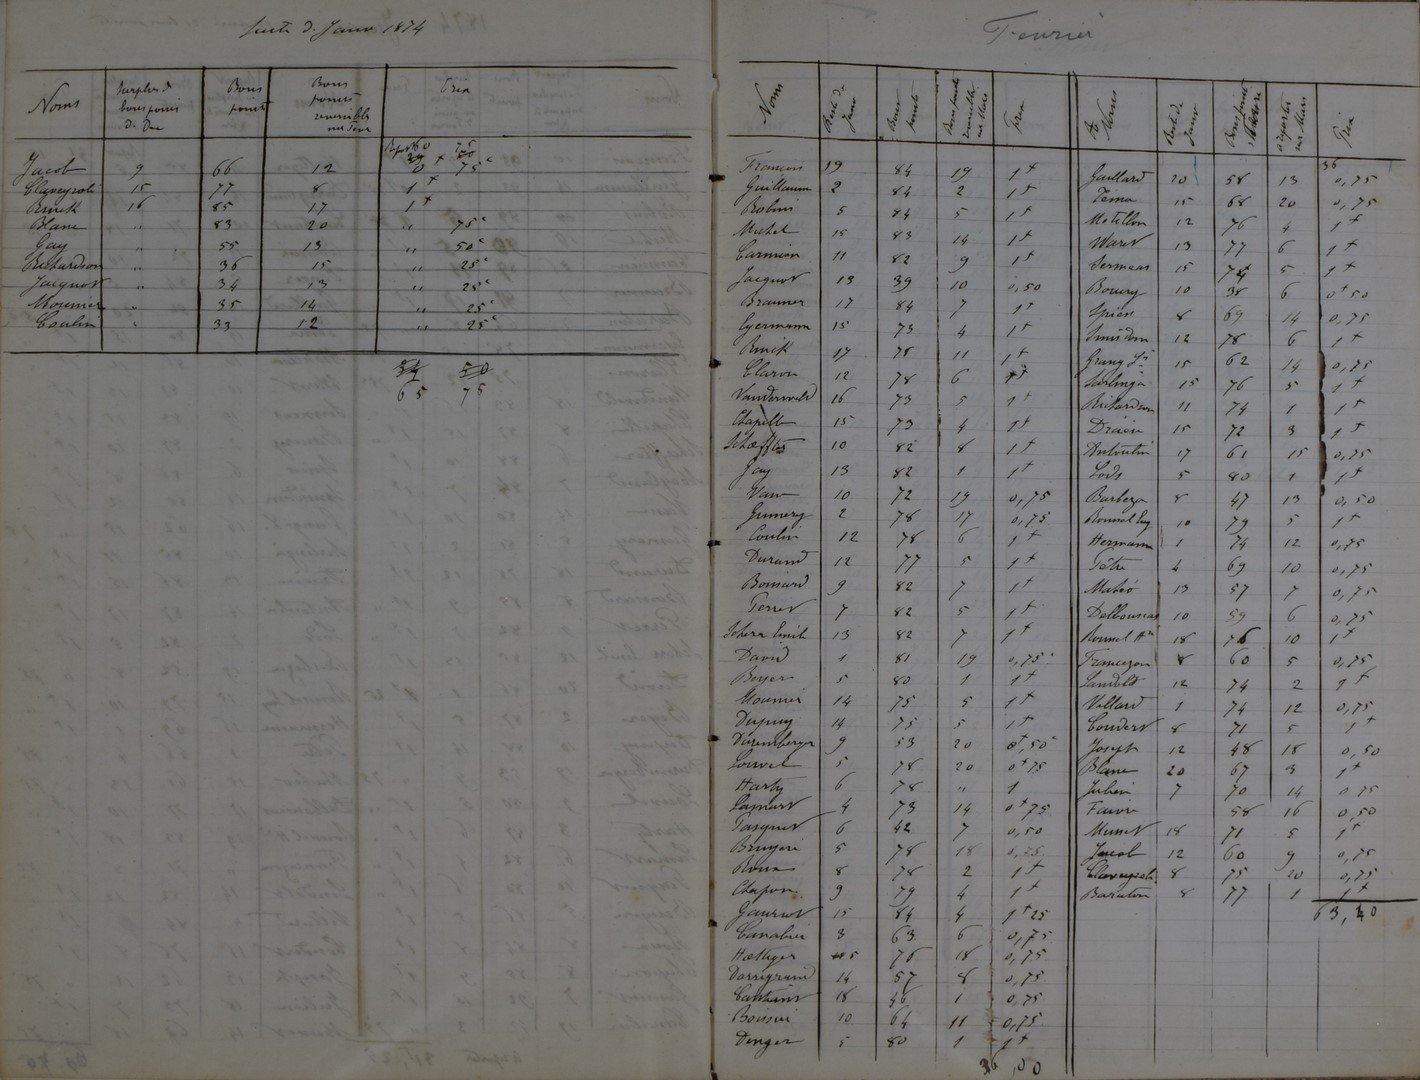 Suite d. Janv 1874
Noms Surplus de bons points de Dec Bons points Bons points reversibles sur Fevr Prix
Report 60 75
Jacob 9 66 12 0 75c
Claveyrole 15 77 8 1+
Brück 16 85 17 1+
Blanc " 83 20 " 75c
Gay " 55 13 " 50c
Richardson " 36 15 " 25c
Jacquot " 34 13 " 25c
Mounier " 35 14 " 25c
Coulin " 33 12 " 25c
65 75
Fevrier
Noms Reste de Janv Bons points Prix
François 19 84 19 1+
Guillaum 2 84 2 1+
Robin 5 84 5 1+
Michel 15 83 14 1+
Carmien 11 82 9 1+
Jacquot 13 39 10 0,50
Braumer 17 84 7 1+
Germann 15 73 4 1+
Brück 17 78 11 1+
Claron 12 78 6 1+
Vanderweld 16 73 5 1+
Chapelle 15 73 4 1+
Schæffter 10 82 8 1+
Gay 13 82 1 1+
Van 10 72 19 0,75
Gumery 2 78 17 0,75
Coulin 12 78 6 1+
Durand 12 77 5 1+
Bonnard 9 82 7 1+
Terret 7 82 5 1+
Scherr Emile 13 82 7 1+
David 1 81 19 0,75c
Boyer 5 80 1 1+
Mounier 14 75 5 1+
Dupuy 14 75 5 1+
Duremberger 9 53 20 0+,50c
Louvel 5 78 20 0+75
Harty 6 78 " 1
Lamart 4 73 14 0+75
Pasquet 6 42 7 0,50
Bruyere 5 78 18 0,75
Roux 8 78 2 1+
Chapon 9 79 4 1+
Gauriot 15 84 4 1+25
Canalier 3 63 6 0,75
Hættiger 5 76 18 0,75
Darrigrand 14 57 8 0,75
18 46 1 0,75
Boissier 10 64 11 0,75
Denger 5 80 1 1+
36,00
Noms Reste de Janv à reporter sur Mars Prix
36
Gaillard 20 58 13 0,75
Tema 15 68 20 0,75
Motellon 12 76 4 1+
Waret 13 77 6 1+
Sermeas 15 74 5 1+
Bouery 10 38 6 0+50
Spiess 8 69 14 0,75
Smirdom 12 78 6 1+
Grang Ls 15 62 14 0,75
Sarlinga 15 76 5 1+
Richardson 11 74 1 1+
15 72 3 1+
Antoulin 17 61 15 0,75
Lods 5 80 1 1+
Barbeza 8 47 13 0,50
Bonnel Eug 10 79 5 1+
Hermann 1 74 12 0,75
Pètre 4 69 10 0,75
Matéo 13 57 7 0,75
10 59 6 0,75
Bonnel Hri 18 76 10 1+
Françezon 8 60 5 0,75
Landolt 12 74 2 1+
Vollard 1 74 12 0,75
Coudert 8 71 5 1+
Joseph 12 48 18 0,50
Blanc 20 67 3 1+
Julien 7 70 14 0,75
Faivre 58 16 0,50
Munet 18 71 5 1+
Jacob 12 60 9 0,75
Claveyrole 8 75 20 0,75
Baraton 8 77 1 1+